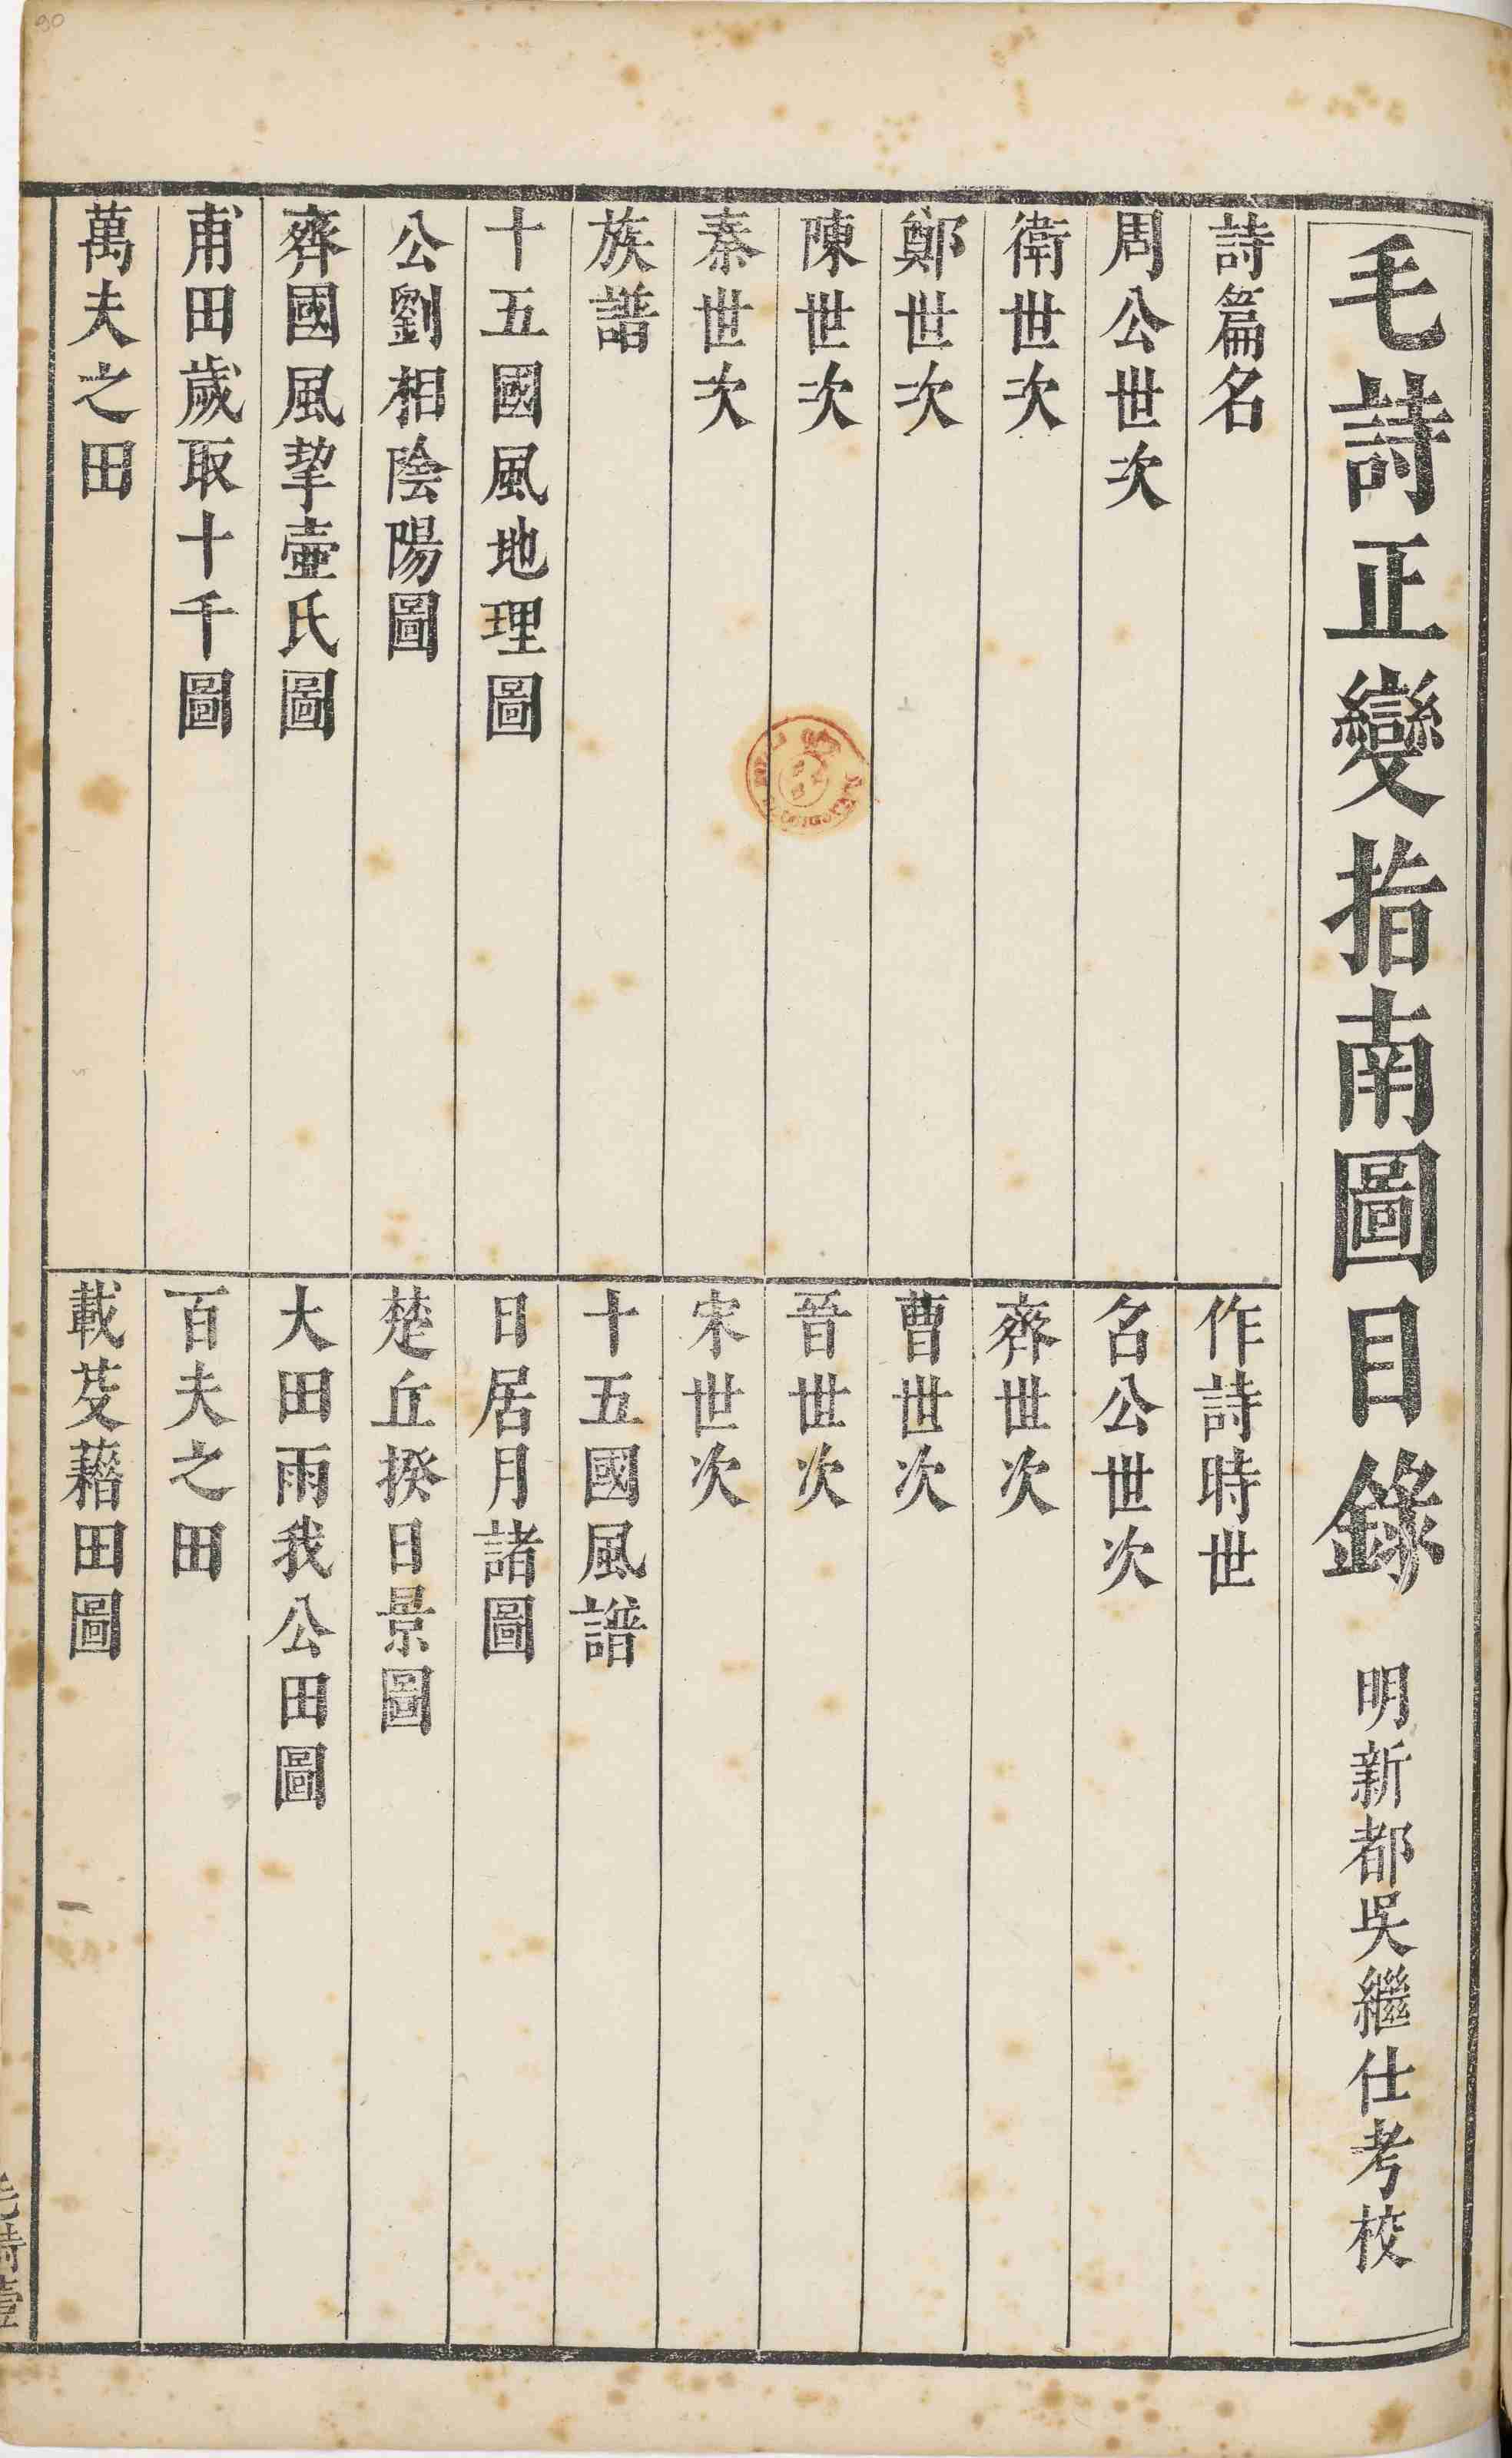 毛詩正變指南圖目錄 明新都吳繼仕考校
詩篇名
作詩時世
周公世次
召公世次
衛世次
齊世次
鄭世次
曹世次
陳世次
晉世次
秦世次
宋世次
族譜
十五國風譜
十五國風地理圖
日居月諸圖
公劉相陰陽圖
楚丘揆日景圖
齊國風挈壺氏圖
大田雨我公田圖
甫田歲取十千圖
百夫之田
萬夫之田
載芟藉田圖
毛詩壹